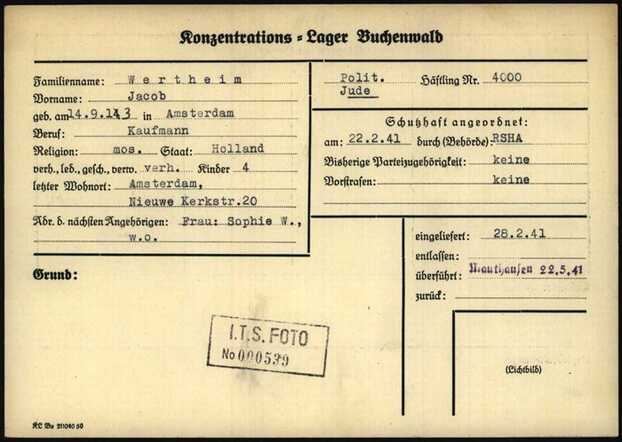 Konzentrations = Lager Buchenwald
Familienname: Wertheim
Vorname: Jacob
geb. am 14.9. in Amsterdam
Beruf: Kaufmann
Religion: mos. Staat: Holland
verh., led., gesch., verw. verh. Kinder 4
letzter Wohnort: Amsterdam,
Nieuwe Kerkstr.20
Adr. d. nächsten Angehörigen: Frau: Sophie W.,
w.o.
Grund:
Polit. Häftling Nr. 4000
Jude
Schutzhaft angeordnet:
am: 22.2.41 durch (Behörde): RSHA
Bisherige Parteizugehörigkeit: keine
Vorstrafen: keine
eingeliefert: 28.2.41
entlassen:
überführt: Mauthausen 22.5.41
zurück:
(Lichtbild)
I.T.S. FOTO
No 000539
KL Bu